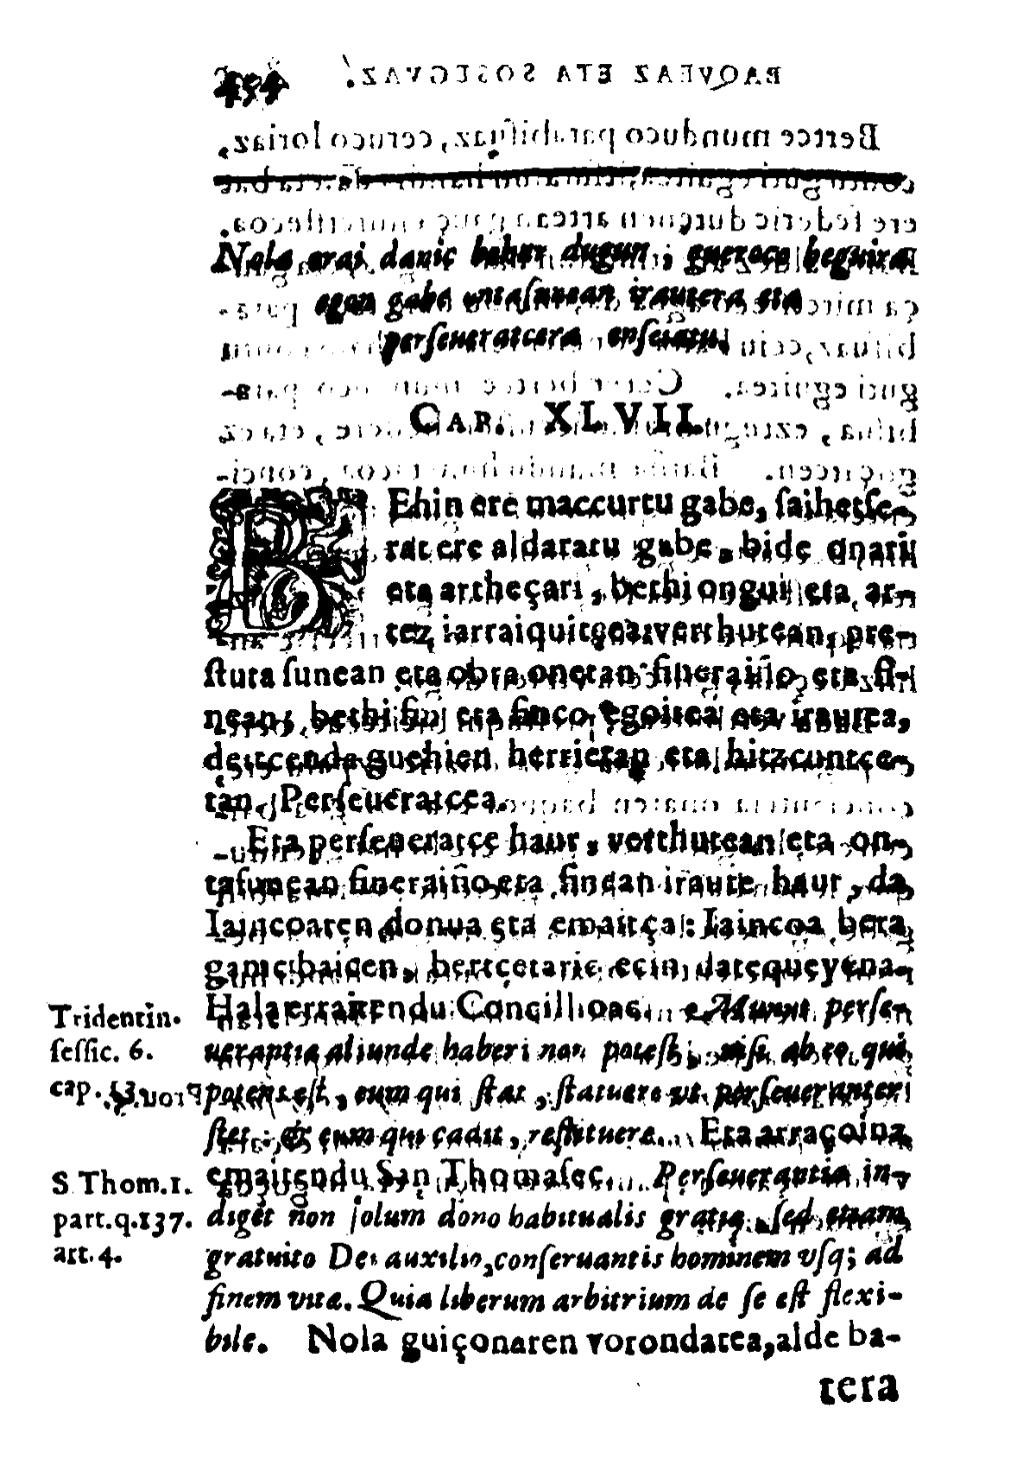 454
Nola orai danic behar dugun, gueroco beguira
egon gabe vntasunean irautera eta
perseueratcera enseiatu.
CAP. XLVII.
BEhin ere maccurtu gabe, saihetse-
rat ere aldaratu gabe, bide onari
eta artheçari, bethi ongui eta ar-
tez iarraiquitçea: verthutean, pre-
stuta sunean eta obra onetan fineraiño eta fi-
nean, bethi fin eta finco egoitea eta irautea,
deitcenda guehien herrietan eta hitzcuntce-
tan, Perseueratcea.
Eta perseueratce haur, verthutean eta on-
tasunean fineraiño eta finean iraute haur, da
Iaincoaren donua eta emaitça: Iaincoa bera
ganic baicen, bertcetaric ecin datequeyena.
Hala erraitendu Concillioac. Munus perse-
uerantiæ aliunde haberi non potest, nisi ab eo, qui
potens est, eum qui stat, statuere vt perseueranter
stet: & eum qui cadit, restituere. Eta arraçoina
emaitendu San Thomasec. Perseuerantia in-
diget non solum dono habitualis gratiæ, sed etiam
gratuito Dei auxilio, conseruantis hominem vsq; ad
finem vitæ. Quia liberum arbitrium de se est flexi-
bile. Nola guiçonaren vorondatea, alde ba-
tera
Tridentin.
sessic. 6.
cap. 13.
S Thom. 1.
part. q. 137.
art. 4.